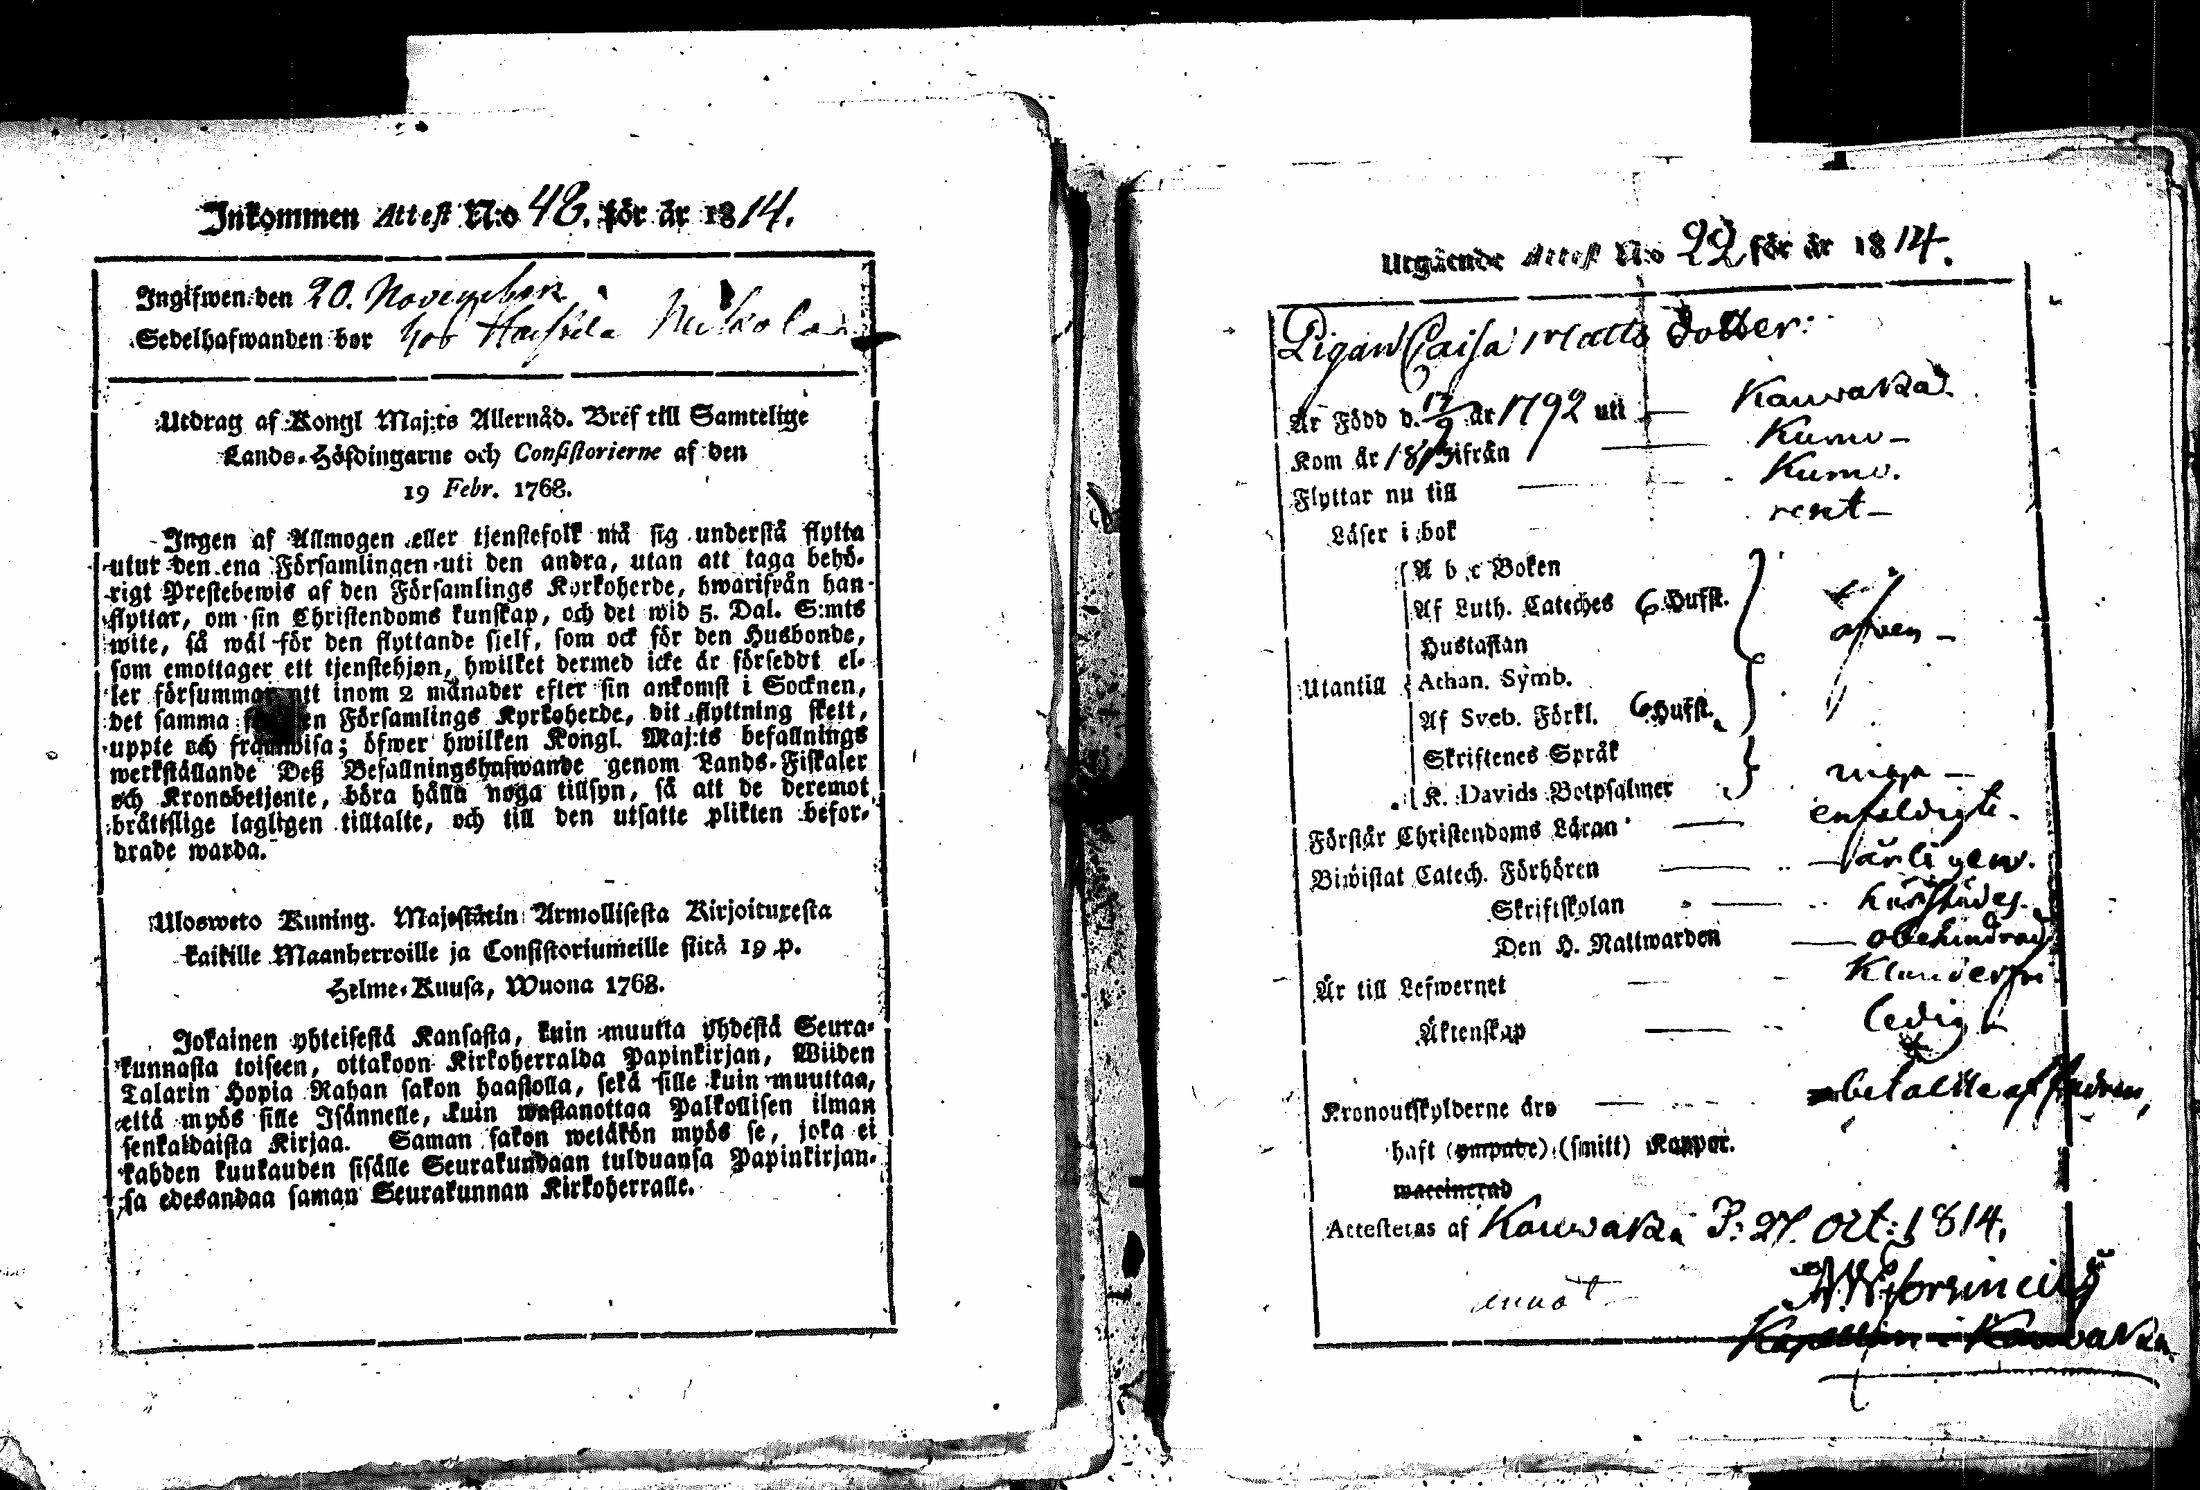 Inkommen Attest N:o 48. för år 1814.
Ingifwen den 20. November
Sedelhafwanden bor hos Nickola
Utdrag af Kongl Maj:ts Allernåd. Bref till Samtelige
Lands-Höfdingarne och Consistorierne af den
19 Febr. 1768.
Ingen af Allmogen eller tjenstefolk må sig understå flytta
utur den ena Församlingen uti den andra, utan att taga behö-
rigt Prestebewis af den Församlings Kyrkoherde, hwarifrån han
flyttar, om sin Christendoms kunskap, och det wid 5. Dal. S:mts
wite, så wäl för den flyttande sielf, som ock för den Husbonde,
som emottager ett tjenstehjon, hwilket dermed icke är förseddt el-
ler försummar att inom 2 månader efter sin ankomst i Socknen,
det samma för den Församlings Kyrkoherde, dit flyttning skett,
uppte och framwisa; öfwer hwilken Kongl. Maj:ts befallnings
werkställande Deß Befallningshafwande genom Lands-Fiskaler
och Kronobetjente, böra hålla noga tillsyn, så att de deremot
bråttslige lagligen tilltalte, och till den utsatte plikten befor-
drade warda.
Ulosweto Kuning. Majestätin Armollisesta Kirjoituxesta
kaikille Maanherroille ja Consistoriumeille siitä 19 p.
Helme-Kuusa, Wuona 1768.
Jokainen yhteisestä Kansasta, kuin muutta yhdestä Seura-
kunnasta toiseen, ottakoon Kirkoherralda Papinkirjan, Wiiden
Talarin Hopia Rahan sakon haastolla, sekä sille kuin muuttaa,
että myös sille Isännelle, kuin wastanottaa Palkollisen ilman
senkaldaista Kirjaa. Saman sakon wetäkön myös se, joka ei
kahden kuukauden sisälle Seurakundaan tulduansa Papinkirjan-
sa edesandaa saman Seurakunnan Kirkoherralle.
Utgående Attest N:o 22 för år 1814.
Pigan Caisa Matts dotter:
Är Född d. 17/9 år 1792 uti Kauwatza
Kom år 1813 ifrån Kumo
Flyttar nu till Kumo.
Läser i bok rent
Utantill
A b c Boken
Af Luth. Cateches 6 Hufst.
Hustaflan
Athan. Symb.
Af Sveb. Förkl. 6 Hufst.
äfven
Skriftenes Språk
K. Davids Botpsalmer
inga
Förstår Christendoms Läran enfaldigt.
Biwistat Catech. Förhören årligen.
Skriftskolan
Den H. Nattwarden obehindrad
Är till Lefwernet
Äktenskap ledig
Kronoutskylderne äro betalde af
haft (ympade) (smitt) Kopper.
waccinerad
Attesteras af Kauwatza P: 27. Oct: 1814.
Kapellan i Kauwatza